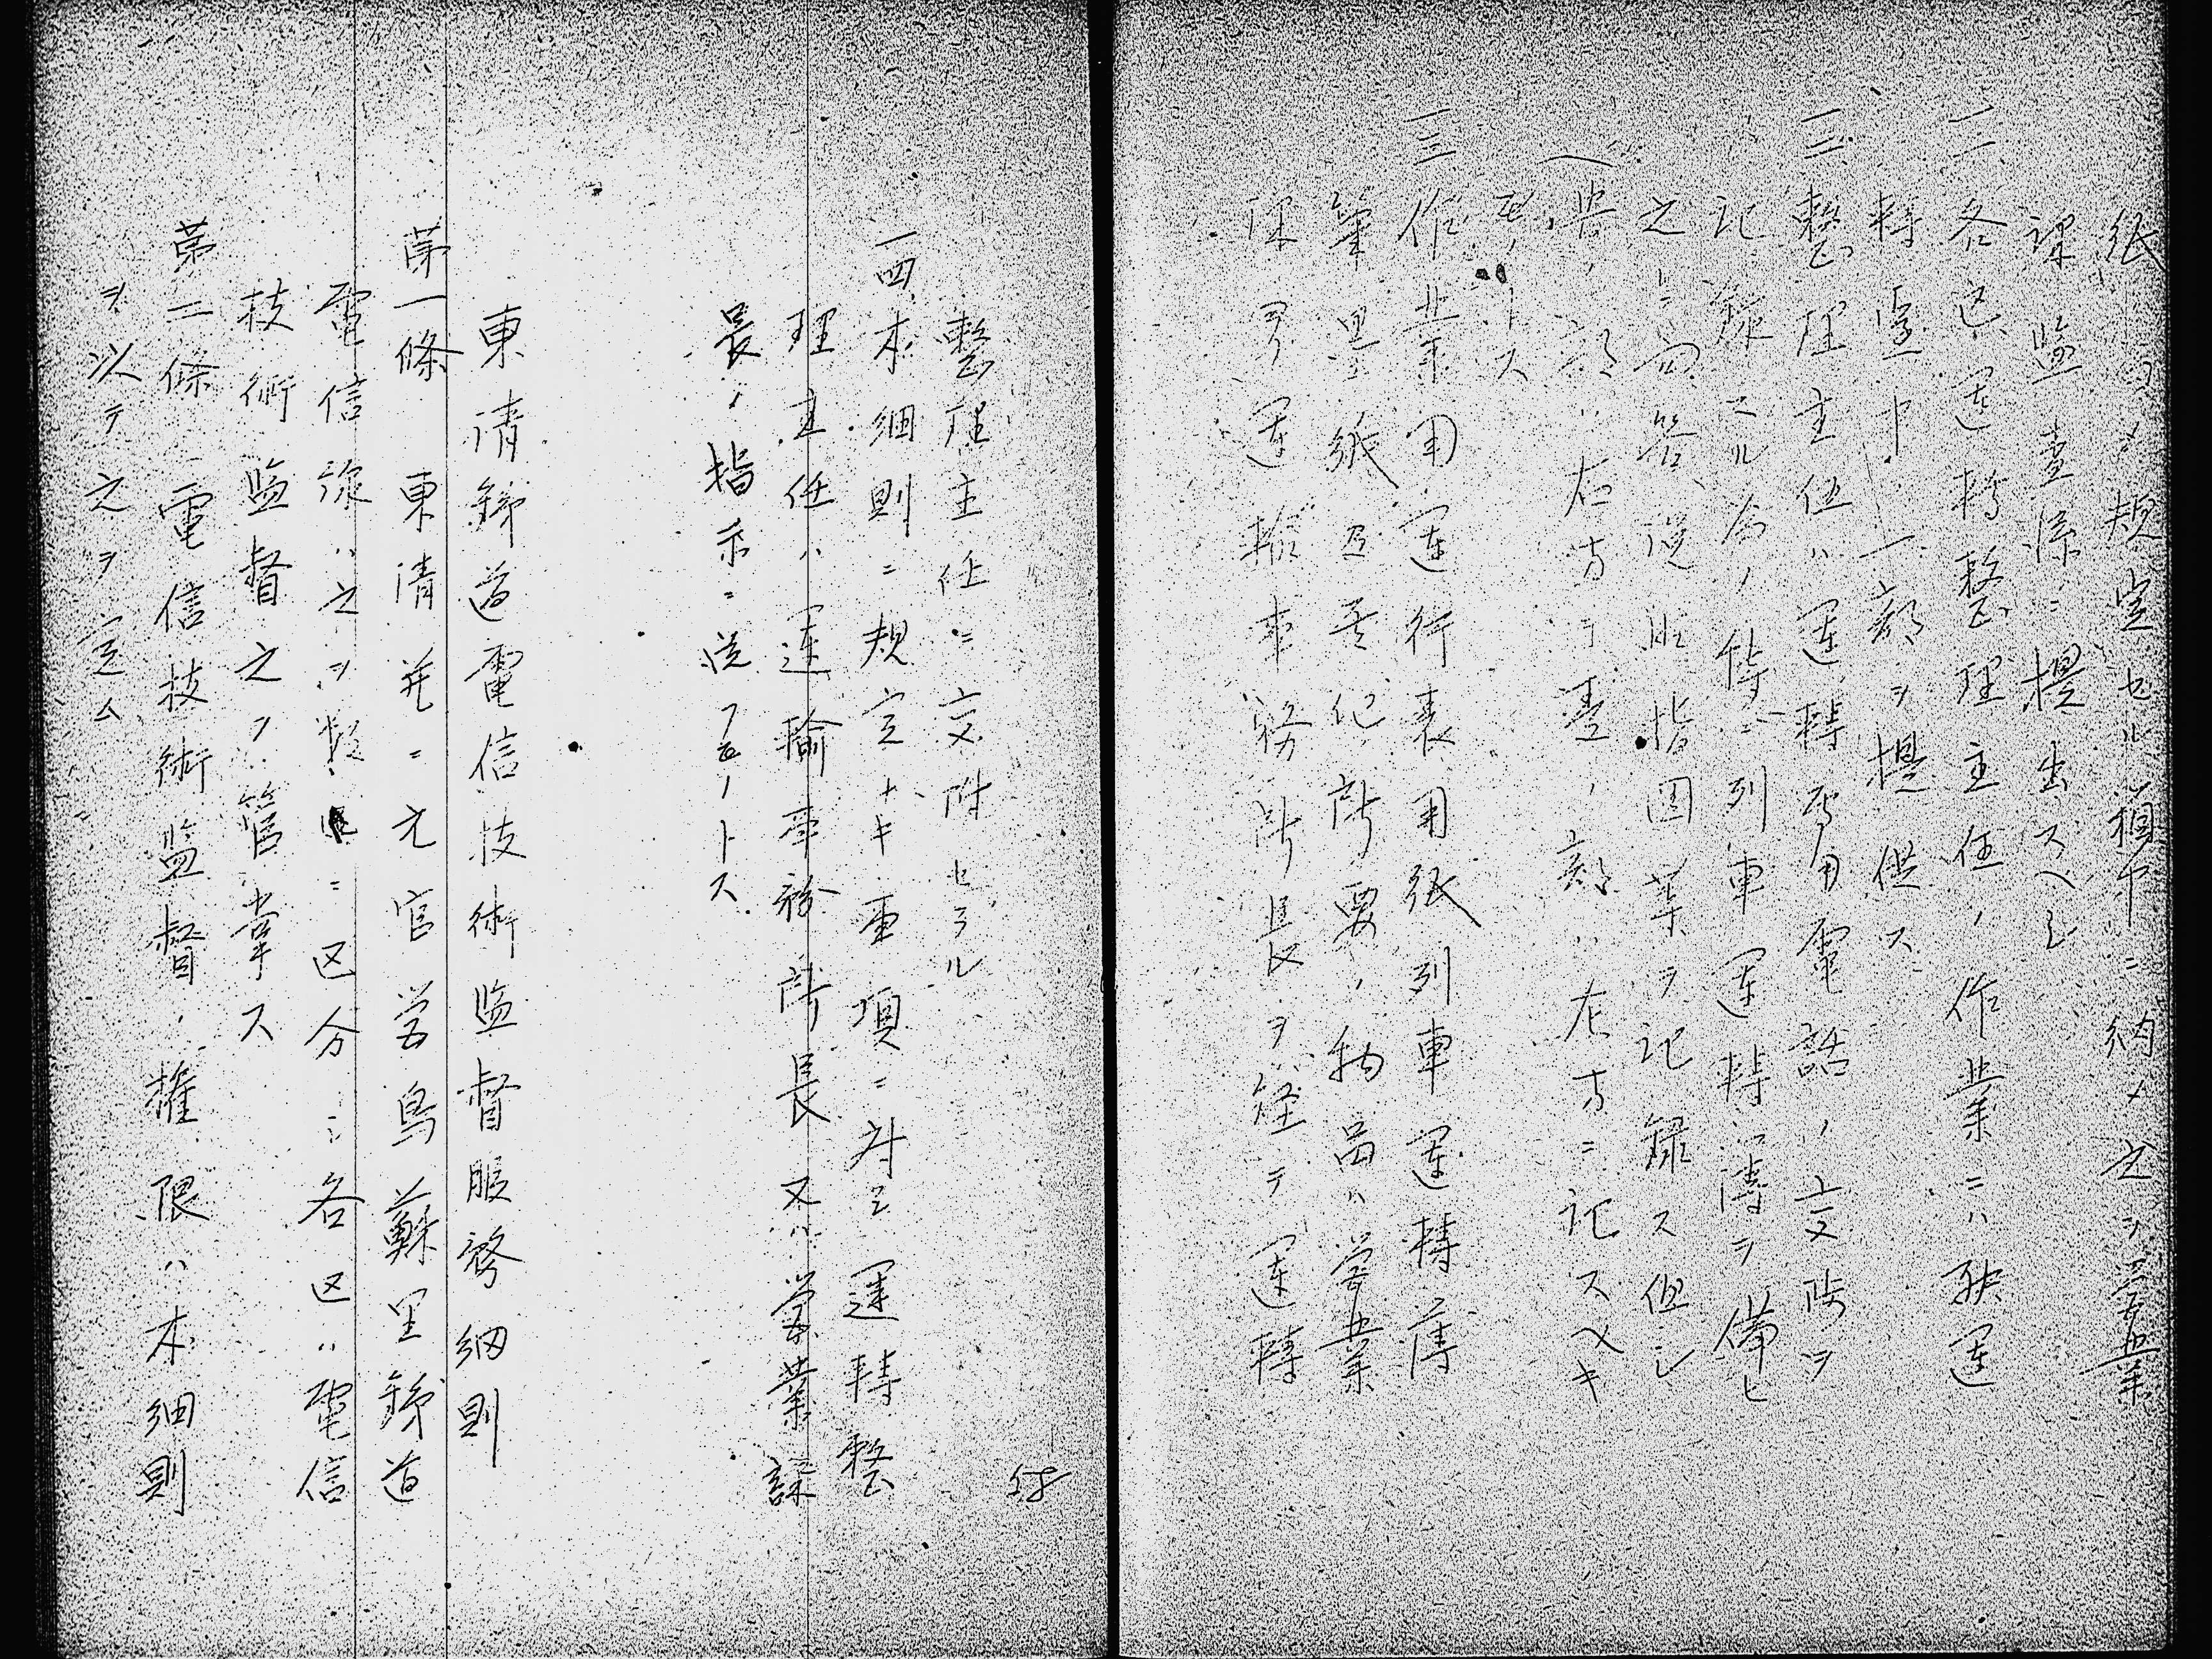 紙ヲ以テ規定セル箱中ニ納メ之ヲ営業
課監査係ニ提出スヘシ
一一各区運転整理主任ノ作業ニハ特運
転室中ノ一部ヲ提供ス
一二整理主任ハ運転専用電話ノ交附ヲ
記録スル為ノ特ニ列車運転簿ヲ備ヒ
之ニ問答従照指図等ヲ記録ス但シ
受ノ部ハ右方ニ発ノ部ハ左方ニ記スヘキ
モノトス
一三作業用運行表用紙列車運転簿
筆墨紙及其他所要ノ物品ハ営業
課ヨリ運輸事務所長ヲ経テ運転
整理主任ニ交附セラル
一四本細則ニ規定ナキ事項ニ対シ運転整
理主任ハ運輸事務所長又ハ営業課
長ノ指示ニ従フモノトス
東清鉄道電信技術監督服務細則
第一條 東清並ニ元官営烏蘇里鉄道
電信線ハ之ヲ数区ニ区分シ各区ハ電信
技術監督之ヲ管掌ス
第二條 電信技術監督ノ権限ハ本細則
ヲ以テ之ヲ定ム
58